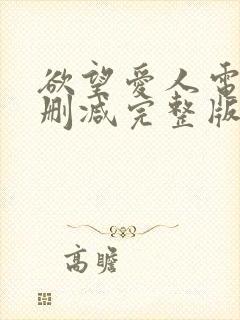 欲望爱人电
删减完整版
高瞻